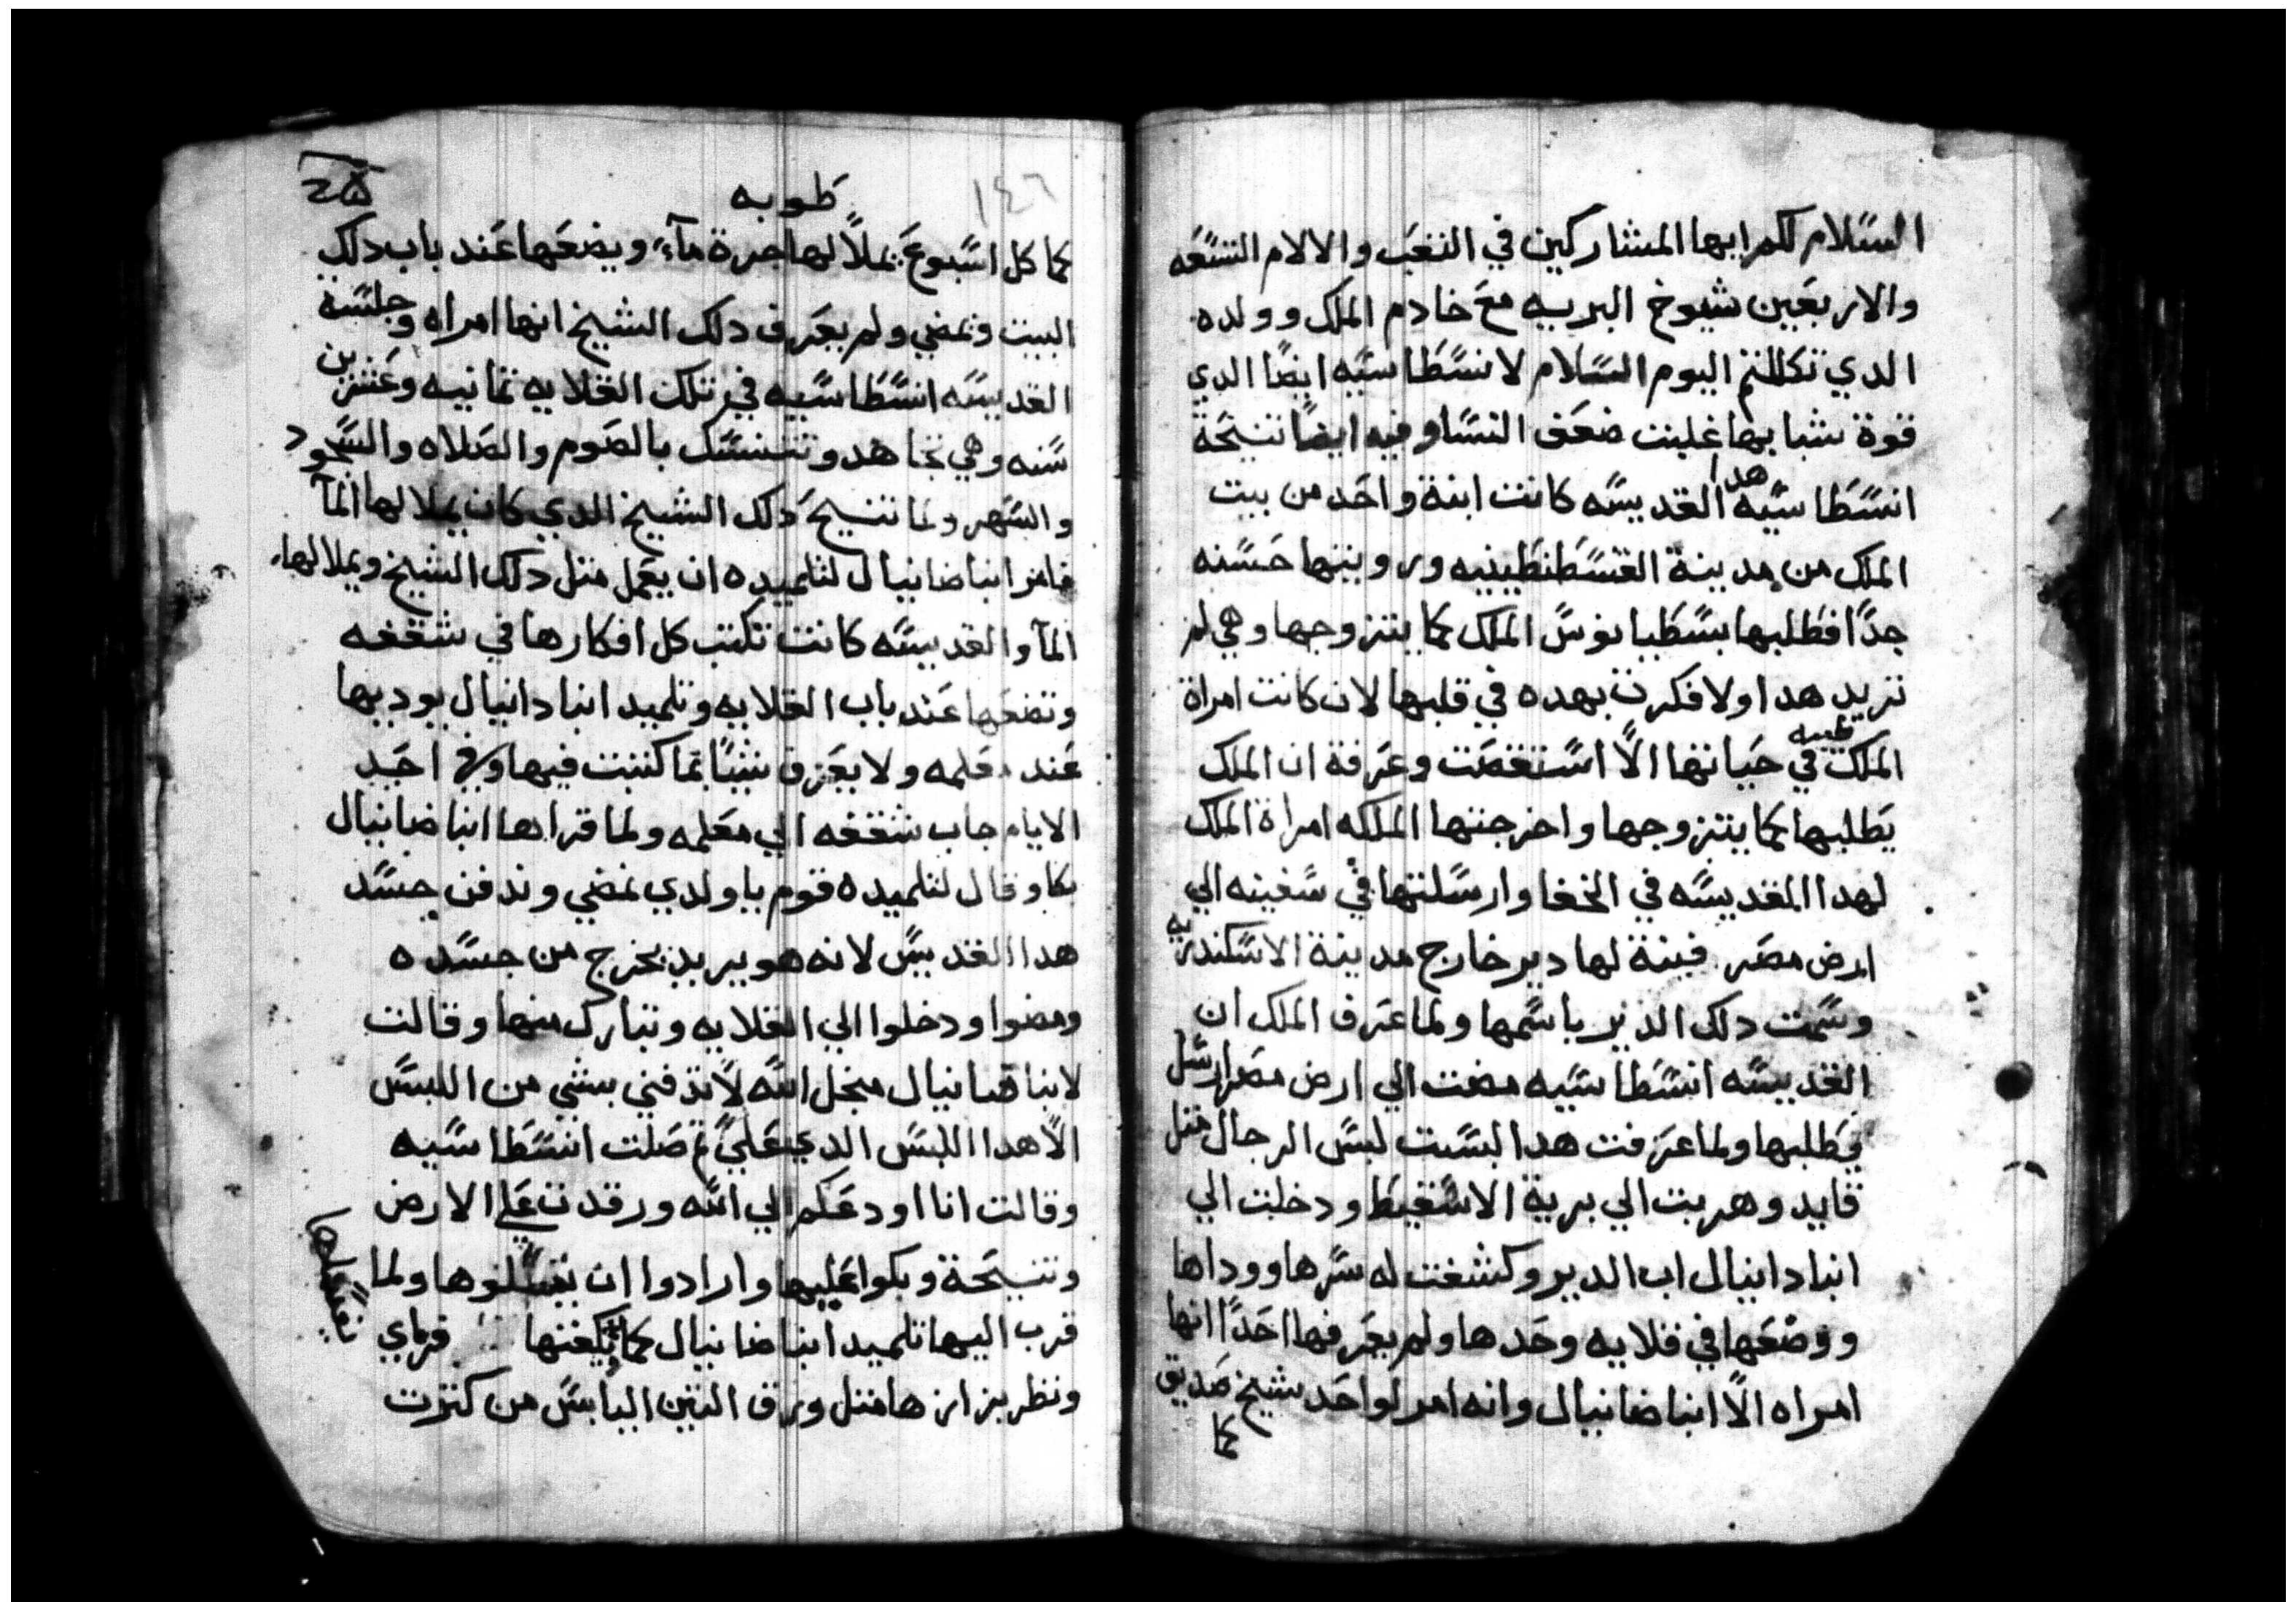 السلام لكم ايها المشاركين في التعب والالام التسعه
والاربعين شيوخ البريه مع خادم الملك وولده
الدي تكللتم اليوم السلام لانسطاسيه ايضا الدي
قوة شبابها غلبت ضعف النسا وفيه ايضا تنيحة
انسطاسيه هدا القديسه كانت ابنة واحد من بيت
الملك من مدينة القسطنطينيه ورويتها حسنه
جدا فطلبها يسطيانوس الملك كما يتزوجها وهي لم
تريد هدا ولا فكرت بهده في قلبها لان كانت امراة
الملك طيبه في حياتها الا استغصت وعرفة ان الملك
يطلبها كما يتزوجها واخرجتها الملكه امراة الملك
لهدا القديسه في الخفا وارسلتها في سفينه الي
ارض مصر فبنة لها دير خارج مدينة الاسكندريه
وسمت دلك الدير باسمها ولما عرف الملك ان
القديسه انسطاسيه مضت الي ارض مصر ارسل
يطلبها ولما عرفت هدا لبست لبس الرجال متل
قايد وهربت الي برية الاسقيط ودخلت الي
انبا دانيال اب الدير وكشفت له سرها ووداها
ووضعها في قلايه وحدها ولم يعرفها احدا انها
امراه الا انبا ضانيال وانه امر لواحد شيخ صديق
كما
طوبه
١٤٦
كما كل اسبوع يملا لها جرة مآء ويضعها عند باب دلك
البيت ويمضي ولم يعرف دلك الشيخ انها امراه وجلسه
القديسه انسطاسيه في تلك القلايه تمانيه وعشرين
سنه وهي تجاهد وتتنسك بالصوم والصلاه والسجود
والسهر ولما تنيح دلك الشيخ الدي كان يملا لها المآ
فامر انبا ضانيال لتلميده ان يعمل متل دلك الشيخ ويملا لها
المآ والقديسه كانت تكتب كل افكارها في شقفه
وتضعها عند باب القلايه وتلميد انبا دانيال يوديها
عند معلمه ولا يعرف شيا بما كتبت فيها وفي احد
الايام جاب شقفه الي معلمه ولما قراها انبا ضانيال
بكا وقال لتلميده قوم يا ولدي نمضي وندفن جسد
هدا القديس لانه هو يريد يخرج من جسده
ومضوا ودخلوا الي القلايه وتبارك منها وقالت
لانبا ضانيال منجل الله لا تدفني بشي من اللبس
الا هدا اللبس الدي علي تم صلت انسطاسيه
وقالت انا اودعكم الي الله ورقدت علي الارض
وتنيحة وبكوا عليها وارادوا ان يغسلوها ولما
قرب اليها تلميد انبا ضانيال كما يكفنها فراي
ونظر بزازها متل ورق التين اليابس من كترت